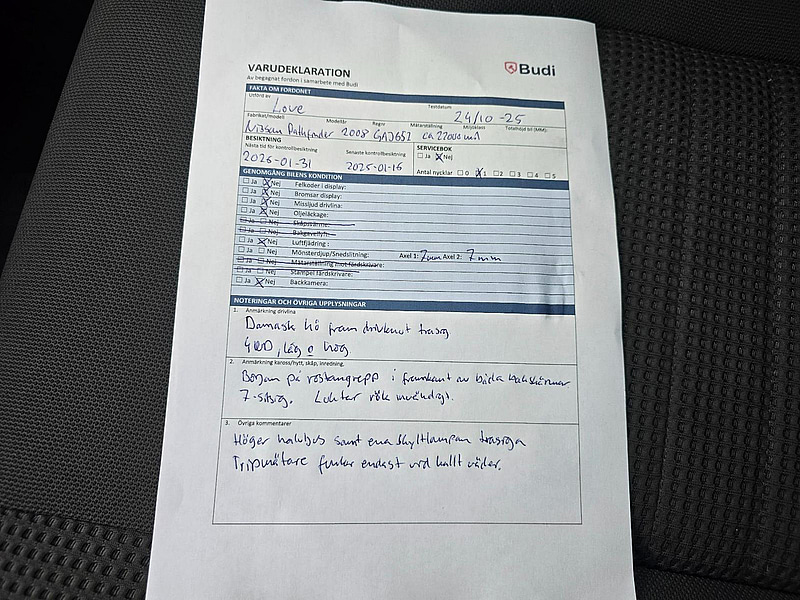 VARUDEKLARATION
Budi
Av begagnat fordon i samarbete med Budi
FAKTA OM FORDONET
Utförd av Testdatum
Love 24/10 -25
Fabrikat/modell Modellår Regnr Mätarställning Miljöklass Totalhöjd bil (MM):
Nissan Pathfinder 2008 GAJ651 ca 22000 mil
BESIKTNING SERVICEBOK
Nästa tid för kontrollbesiktning Senaste kontrollbesiktning Ja Nej
2026-01-31 2025-01-16
Antal nycklar 0 1 2 3 4 5
GENOMGÅNG BILENS KONDITION
Ja Nej Felkoder i display:
Ja Nej Bromsar display:
Ja Nej Missljud drivlina:
Ja Nej Oljeläckage:
Ja Nej Skåpvärme:
Ja Nej Bakgavellyft:
Ja Nej Luftfjädring:
Ja Nej Mönsterdjup/Snedslitning: Axel 1: 7mm Axel 2: 7mm
Ja Nej Mätarställning mot färdskrivare:
Ja Nej Stämpel färdskrivare:
Ja Nej Backkamera:
NOTERINGAR OCH ÖVRIGA UPPLYSNINGAR
1. Anmärkning drivlina
Damask hö fram drivknut trasig
4WD, låg o hög
2. Anmärkning kaross/hytt, skåp, inredning.
Början på rostangrepp i framkant av båda bakskärmar
7-sitsig. Luktar rök invändigt.
3. Övriga kommentarer
Höger halvljus samt ena skyltlampan trasiga
Tripmätare funkar endast vid kallt väder.